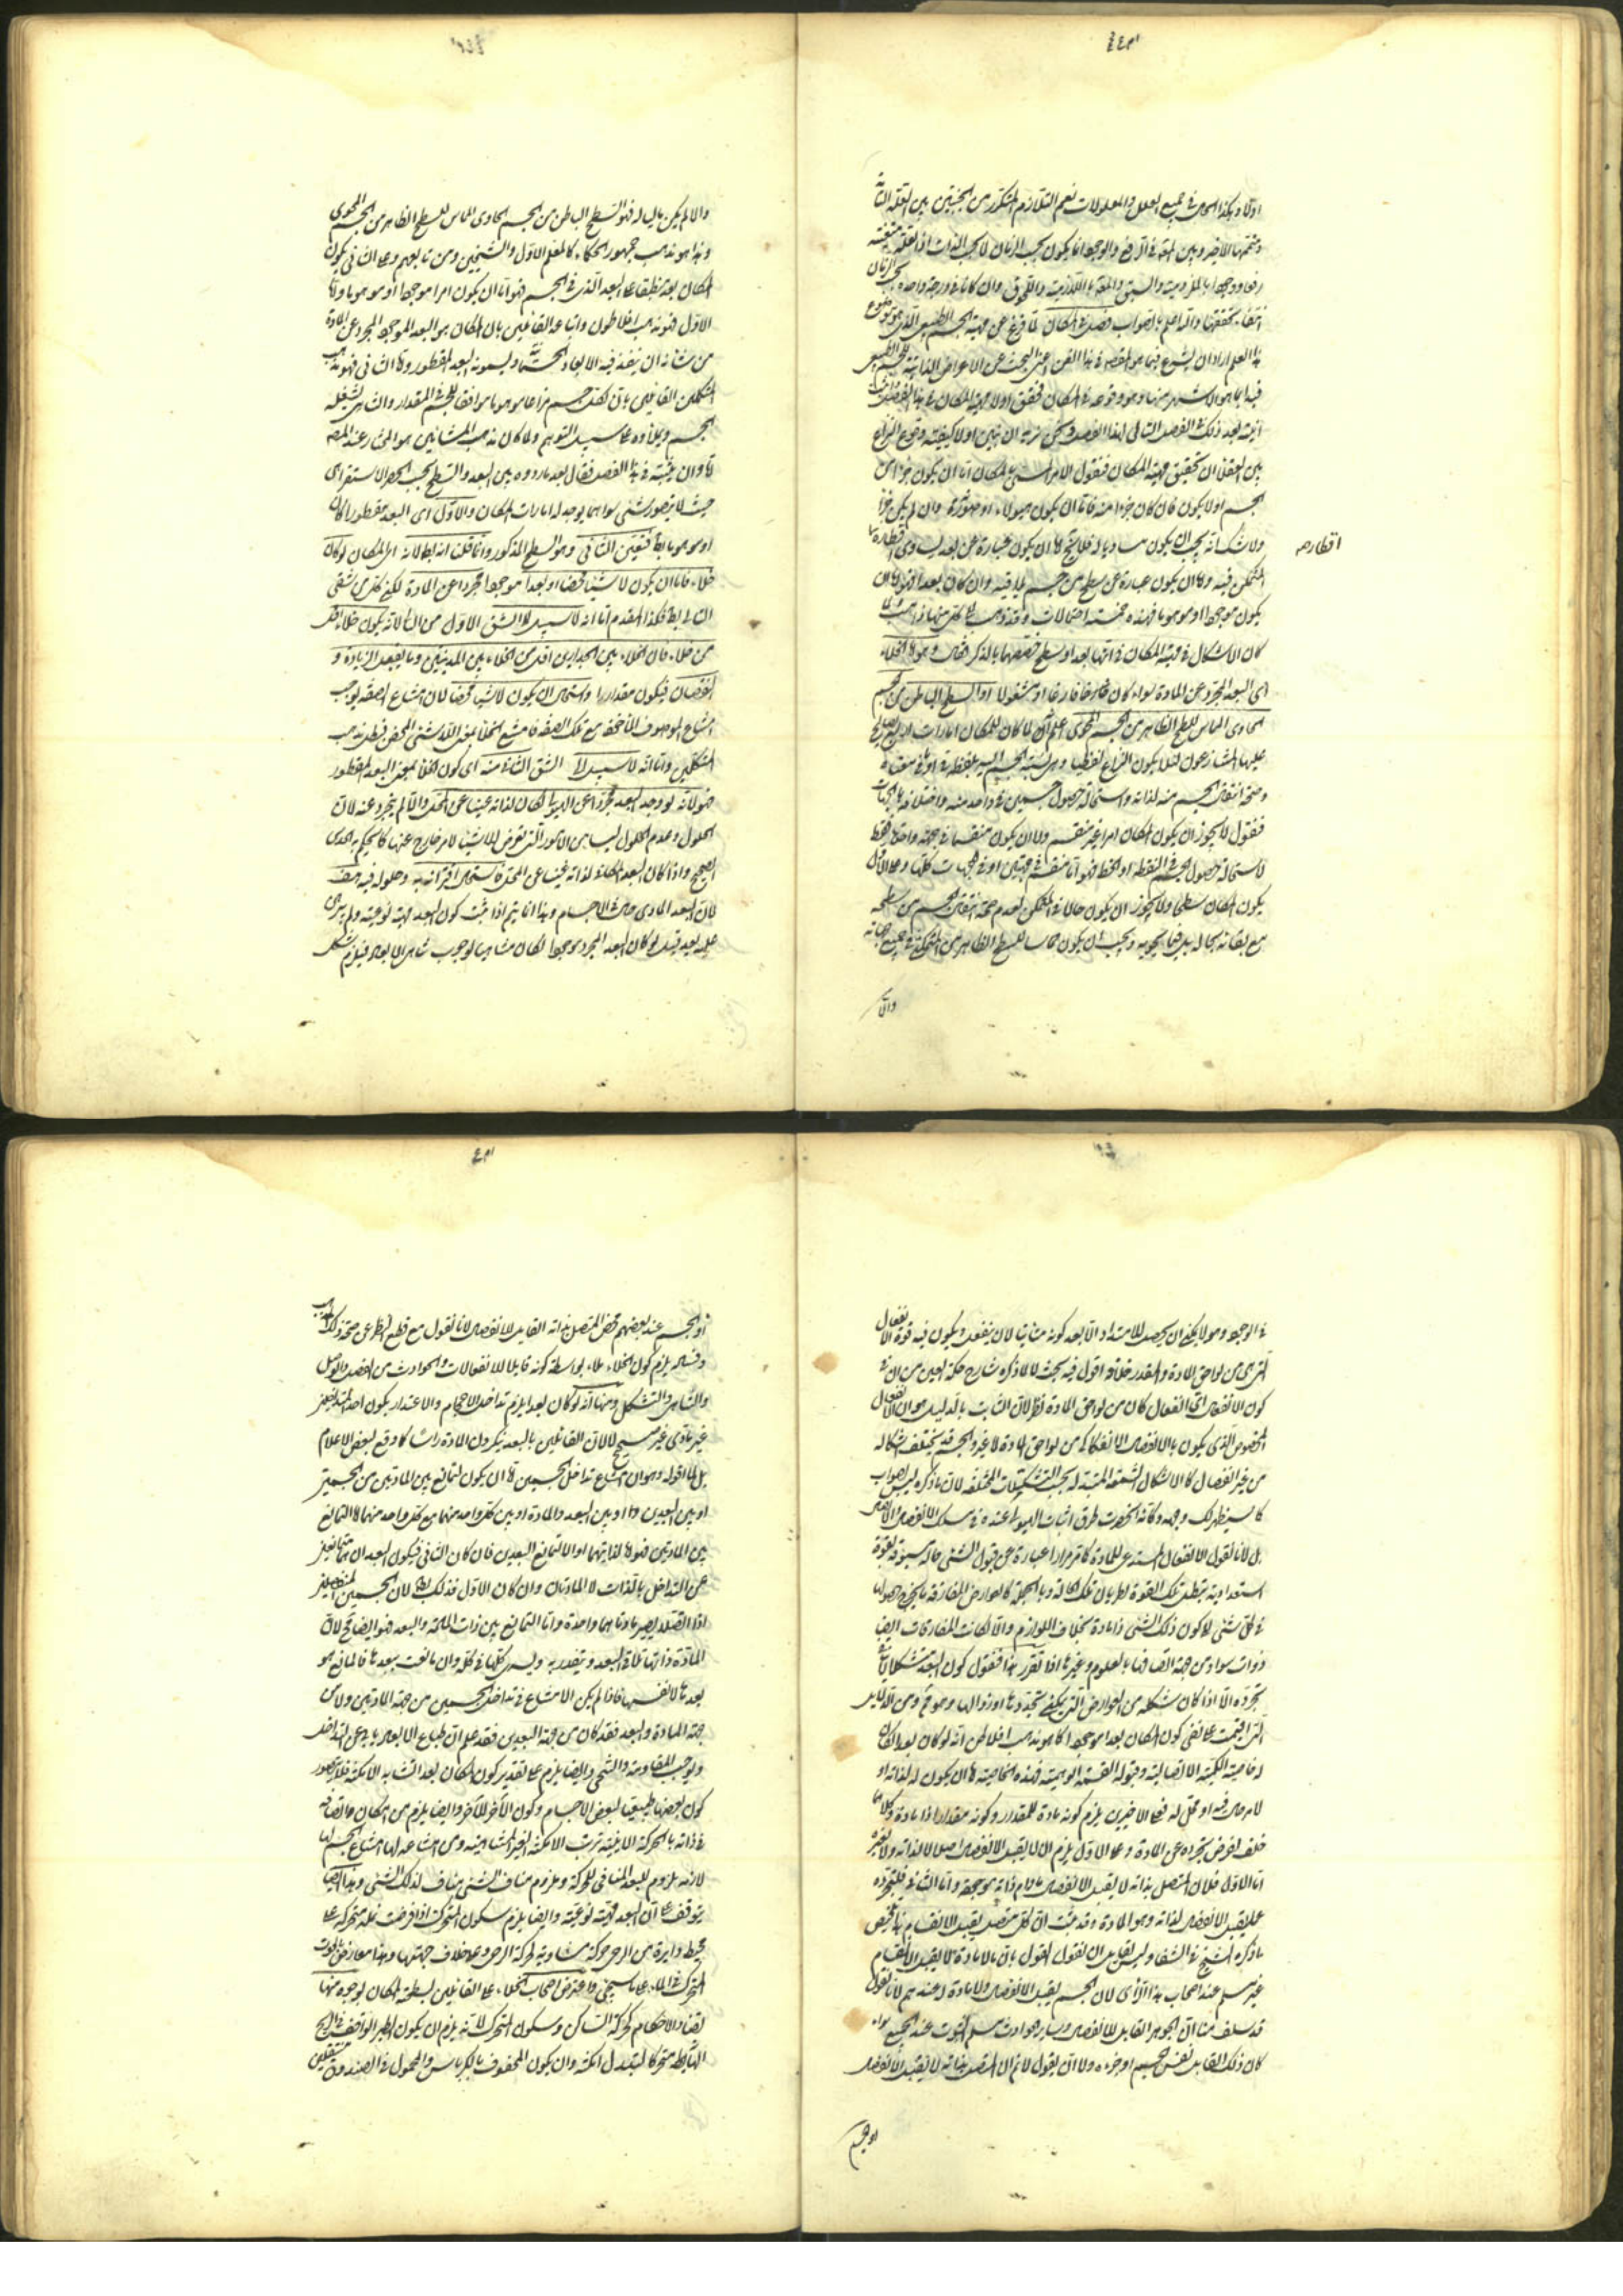 اولا وهكذا الحال في جميع العلل والمعلولات نعم التلازم المتكرر من الجنبتين بين العلة التامة
ومتممها الاخير وبين المعلول في الرفع والوجود انما يكون بحسب الزمان لا بحسب الذات اذ العلة
رفعا ووجودا بالملزومية والسبق والمعلول باللازمية واللحوق وان كانا في درجة واحدة بحسب الزمان
والله اعلم بالصواب فصل في المكان لما فرغ عن مهية الجسم الطبيعي الذي هو موضوع
هذا العلم اراد ان يشرع فيما هو المقصود في هذا الفن اعني البحث عن الاعراض الذاتية للجسم الطبيعي
فبدأ بما هو الاشهر منها وهو وقوعه في المكان فحقق اولا مهية المكان في هذا الفصل
انيته بعد ذلك في الفصل التالي لهذا الفصل ونحن نريد ان نبين اولا كيفية وقوع النزاع
بين العقلاء في تحقيق مهية المكان فنقول الامر المسمى بالمكان اما ان يكون جزءا من
الجسم اولا يكون فان كان جزءا منه فاما ان يكون هيولاه او صورته وان لم يكن جزءا
ولا شك انه يجب ان يكون مساويا له فلا يخ اما ان يكون عبارة عن بعد يساوي اقطاره
اقطار
المتمكن فيه واما ان يكون عبارة عن سطح من جسم يلاقيه وان كان بعدا فهو اما ان
يكون موجودا او موهوما فهذه خمسة احتمالات وقد ذهب الى كل منها ذاهب ولما
كان الاشكال في مهية المكان في انها بعد او سطح خصهما بالذكر فقال وهو اما الخلاء
اي البعد المجرد عن المادة سواء كان فارغا او مشغولا او السطح الباطن من الجسم
الحاوي المماس للسطح الظاهر من الجسم المحوي اعلم انه لما كان للمكان امارات اربع يصطلح
عليها المتنازعون لئلا يكون النزاع لفظيا وهي نسبة الجسم اليه بلفظة في او ما في معناه
وصحة انتقال الجسم منه لذاته واستحالة حصول جسمين في واحد منه واختلافه بالجهات
فنقول لا يجوز ان يكون المكان امرا غير منقسم ولا ان يكون منقسما في جهة واحدة فقط
لاستحالة حصول الجسم في النقطة او الخط فهو اما منقسم في جهتين او في الجهات كلها وعلى الاول
يكون المكان سطحا ولا يجوز ان يكون حالا في المتمكن لعدم صحة انتقال الجسم من سطحه
مع بقائه بحاله بل فيما يحويه ويجب ان يكون مماسا للسطح الظاهر من المتمكن في جميع جهاته
والا
والا لم يكن ماليا له فهو السطح الباطن من الجسم الحاوي المماس للسطح الظاهر من الجسم المحوي
وهذا هو مذهب جمهور الحكماء كالمعلم الاول والشيخين ومن تابعهم وعلى الثاني يكون
المكان بعدا منطبقا على البعد الذي في الجسم فهو اما ان يكون امرا موجودا او موهوما واما
الاول فهو مذهب افلاطون واتباعه القائلين بان المكان هو البعد الموجود المجرد عن المادة
من شانه ان ينفذ فيه الابعاد الجسمانية ويسمونه البعد المفطور واما الثاني فهو مذهب
المتكلمين القائلين بان لكل جسم فراغا موهوما موافقا للجسم في المقدار والتناهي يشغله
الجسم ويملأه على سبيل التوهم ولما كان مذهب المشائين هو المختار عند المص
اراد ان يثبته في هذا الفصل فقال بعد ما ردده بين البعد والسطح بحسب الحصر الاستقرائي
حيث لا يتصور شيء سواهما يوجد له امارات المكان والاول اي البعد مفطورا كان
او موهوما باطل فتعين الثاني وهو السطح المذكور وانما قلنا انه باطل لانه اي المكان لو كان
خلاء فاما ان يكون لا شيئا محضا او بعدا موجودا مجردا عن المادة لكن كلا من شقي
التالي باطل فكذا المقدم اما انه لا سبيل الى الشق الاول من التالي لانه يكون خلاء اقل
من خلاء فان الخلاء بين الجدارين اقل من الخلاء بين المدينتين وما يقبل الزيادة و
النقصان فيكون مقدارا واستحال ان يكون لا شيئا محضا لان امتناع الصفة يوجب
امتناع الموصوف الماخوذ مع تلك الصفة فامتنع الخلاء بمعنى اللاشيء المحض فبطل مذهب
المتكلمين واما انه لا سبيل الى الشق الثاني منه اي كون الخلاء بمعنى البعد المفطور
فهو لانه لو وجد البعد مجردا عن الهيولى لكان لذاته غنيا عن المحل والا لم يتجرد عنه لان
الحلول وعدم الحلول ليسا من الامور التي تعرض للاشياء لامر خارج عنها كما يحكم به الحدس
الصحيح واذا كان البعد المكاني لذاته غنيا عن المحل فاستحال اقترانه به وحلوله فيه هف
لان البعد المادي حال في الاجسام وهذا انما يتم اذا ثبت كون البعد مهية نوعية ولم يبرهن
عليه بعد قيل لو كان البعد المجرد موجودا لكان متناهيا لوجوب تناهي الابعاد فيلزم شكل
في الوجود وهو لا يمكن ان يحصل للامتداد الا بعد كونه متاتيا لان ينفعل ويكون فيه قوة الانفعال
التي هي من لواحق المادة والمقدر خلافه اقول فيه بحث لا لما ذكره شارح حكمة العين من ان في
كون الانفعال اي انفعال كان من لواحق المادة نظر لان الثابت بالدليل هو ان الانفعال
المخصوص الذي يكون بالانفصال والانفكاك من لواحق المادة لا غير والجسم قد يختلف اشكاله
من غير انفصال كالاشكال الشمعة المتبدلة بحسب التشكيلات المختلفة لان ما ذكره ليس بصواب
كما سيظهر لك وجهه وكانه انحصرت طرق اثبات الهيولى عنده في مسلك الانفصال والاتصال
بل لانا نقول الانفعال المستدعي للمادة كما مر مرارا عبارة عن قبول الشيء حالة مسبوقة بقوة
استعدادية تبطل تلك القوة لطريان تلك الحالة وبالجملة كالعوارض المفارقة ما يحوج حصولها
في اي شيء لا كون ذلك الشيء ذا مادة بخلاف اللوازم والا لكانت المفارقات ايضا
ذوات مواد من جهة اتصافها بالعلوم وغيرها اذا تقرر هذا فنقول كون البعد متشكلا ينافي
تجرده الا اذا كان شكله من العوارض التي يمكن تجددها او زوالها وهو مم ومن الدلائل
التي اقيمت على نفي كون المكان بعدا موجودا كما هو مذهب افلاطن انه لو كان بعدا لكان
له خاصية الكمية الاتصالية وقبوله القسمة الوهمية فهذه الخاصية اما ان يكون له لذاته او
لامر حال فيه او محل له فعلى الاخيرين يلزم كونه مادة للمقدار وكونه مقدارا ذا مادة وكلاهما
خلف لفرض تجرده عن المادة وعلى الاول يلزم ان لا يقبل الانفصال اصلا لا لذاته ولا لغيره
اما الاول فلان المتصل بذاته لا يقبل الانفصال ما دام ذاته موجودة واما الثاني فلتجرده
عما يقبل الانفصال لذاته وهو المادة وقد ثبت ان كل متصل يقبل الانقسام هذا تلخيص
ما ذكره الشيخ في الشفاء وليس لقائل ان يقول القول بان ما لا مادة له لا يقبل الانقسام
غير مسلم عند اصحاب هذا الرأي لان الجسم يقبل الانفصال ولا مادة له عندهم لانا نقول
قد سلف منا ان الجوهر القابل للانفصال وساير الحوادث مسلم الثبوت عند الجميع سواء
كان ذلك القابل نفس الجسم او جزءه ولا ان يقول لا نم ان المتصل بذاته لا يقبل الانفصال
او الجسم
او الجسم عند بعضهم محض المتصل بذاته القابل للانفصال لانا نقول مع قطع النظر عن صحة ذلك
وفساده يلزم كون الخلاء ملاء بواسطة كونه قابلا للانفعالات والحوادث من الفصل والوصل
والتناهي والتشكل ومنها انه لو كان بعدا يلزم تداخل الاجسام والاعتذار بكون احد المتداخلين
غير مادي غير مسموع لا لان القائلين بالبعد ينكرون المادة راسا كما وقع لبعض الاعلام
بل لما اقوله وهو ان امتناع تداخل الجسمين اما ان يكون لتمانع بين المادتين من الجسمين
او بين البعدين او بين البعد والمادة او بين كل واحد منهما مع كل واحد منهما اما التمانع
بين المادتين فهو اما لذاتيهما او لتمانع البعدين فان كان الثاني فيكون البعدان متمانعين
عن التداخل بالذات لا المادتان وان كان الاول فذلك بط لان الجسمين المنفصلين
اذا اتصلا يصير مادتاهما واحدة واما التمانع بين ذات المادة والبعد فهو ايضا مح لان
المادة ذاتها تلاقي البعد وتتقدر به وليس كلها في كل وان مانعت بعدها فالمانع هو
بعدها لا نفسها فاذا لم يكن الامتناع في تداخل الجسمين من جهة المادتين ولا من
جهة المادة والبعد فقد كان من جهة البعدين فقد علم ان طباع الابعاد يابى عن التداخل
ويوجب المقاومة والتنحي وايضا يلزم على تقدير كون المكان بعدا تشابه الامكنة فلا يتصور
كون بعضها طبيعيا لبعض الاجسام وكون الآخر للآخر وايضا يلزم من امكان اتصافه
في ذاته بالحركة الاينية ترتب الامكنة الغير المتناهية ومن امتناعه لها امتناع الجسم لها
لانه ملزوم للبعد المنافي للحركة وملزوم منافي الشيء مناف لذلك الشيء وهذا ايضا
يتوقف على ان البعد مهية نوعية وايضا يلزم سكون المتحرك اذا فرضت نملة متحركة على
محيط دايرة من الرحى حركة مساوية لحركة الرحى وعلى خلاف جهتها وهذا معارض
المتحرك في الماء على ما سيجيء واعترض اصحاب الخلاء على القائلين بسطحية المكان بوجوه منها
تضاد الاحكام كحركة الساكن وسكون المتحرك لانه يلزم ان يكون الطير الواقف في الريح
الهابطة متحركا لتبدل امكنته وان يكون المحفوف بالكرباس والمحمول في الصندوق